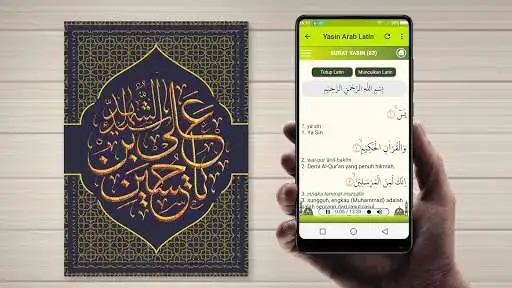 يا حسين بن علي الشهيد
Yasin Arab Latin
SURAT YASIN (83)
Tutup Latin
Munculkan Latin
بِسْمِ اللّٰهِ الرَّحْمٰنِ الرَّحِيْمِ
يٰسۤ
1. yā sīn
1. Ya Sin
وَالْقُرْاٰنِ الْحَكِيْمِ
2. wal-qur`ānil-ḥakīm
2. Demi Al-Qur'an yang penuh hikmah,
اِنَّكَ لَمِنَ الْمُرْسَلِيْنَ
3. innaka laminal-mursalīn
3. sungguh, engkau (Muhammad) adalah